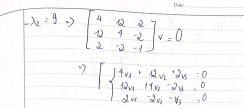 Date
-λ₂ = 9 => [ 4 12 2
12 4 -2
2 -2 -1 ] v = 0
=> [ { 4v₁ + 12v₂ + 2v₃ = 0
12v₁ + 4v₂ - 2v₃ = 0
2v₁ - 2v₂ - v₃ = 0